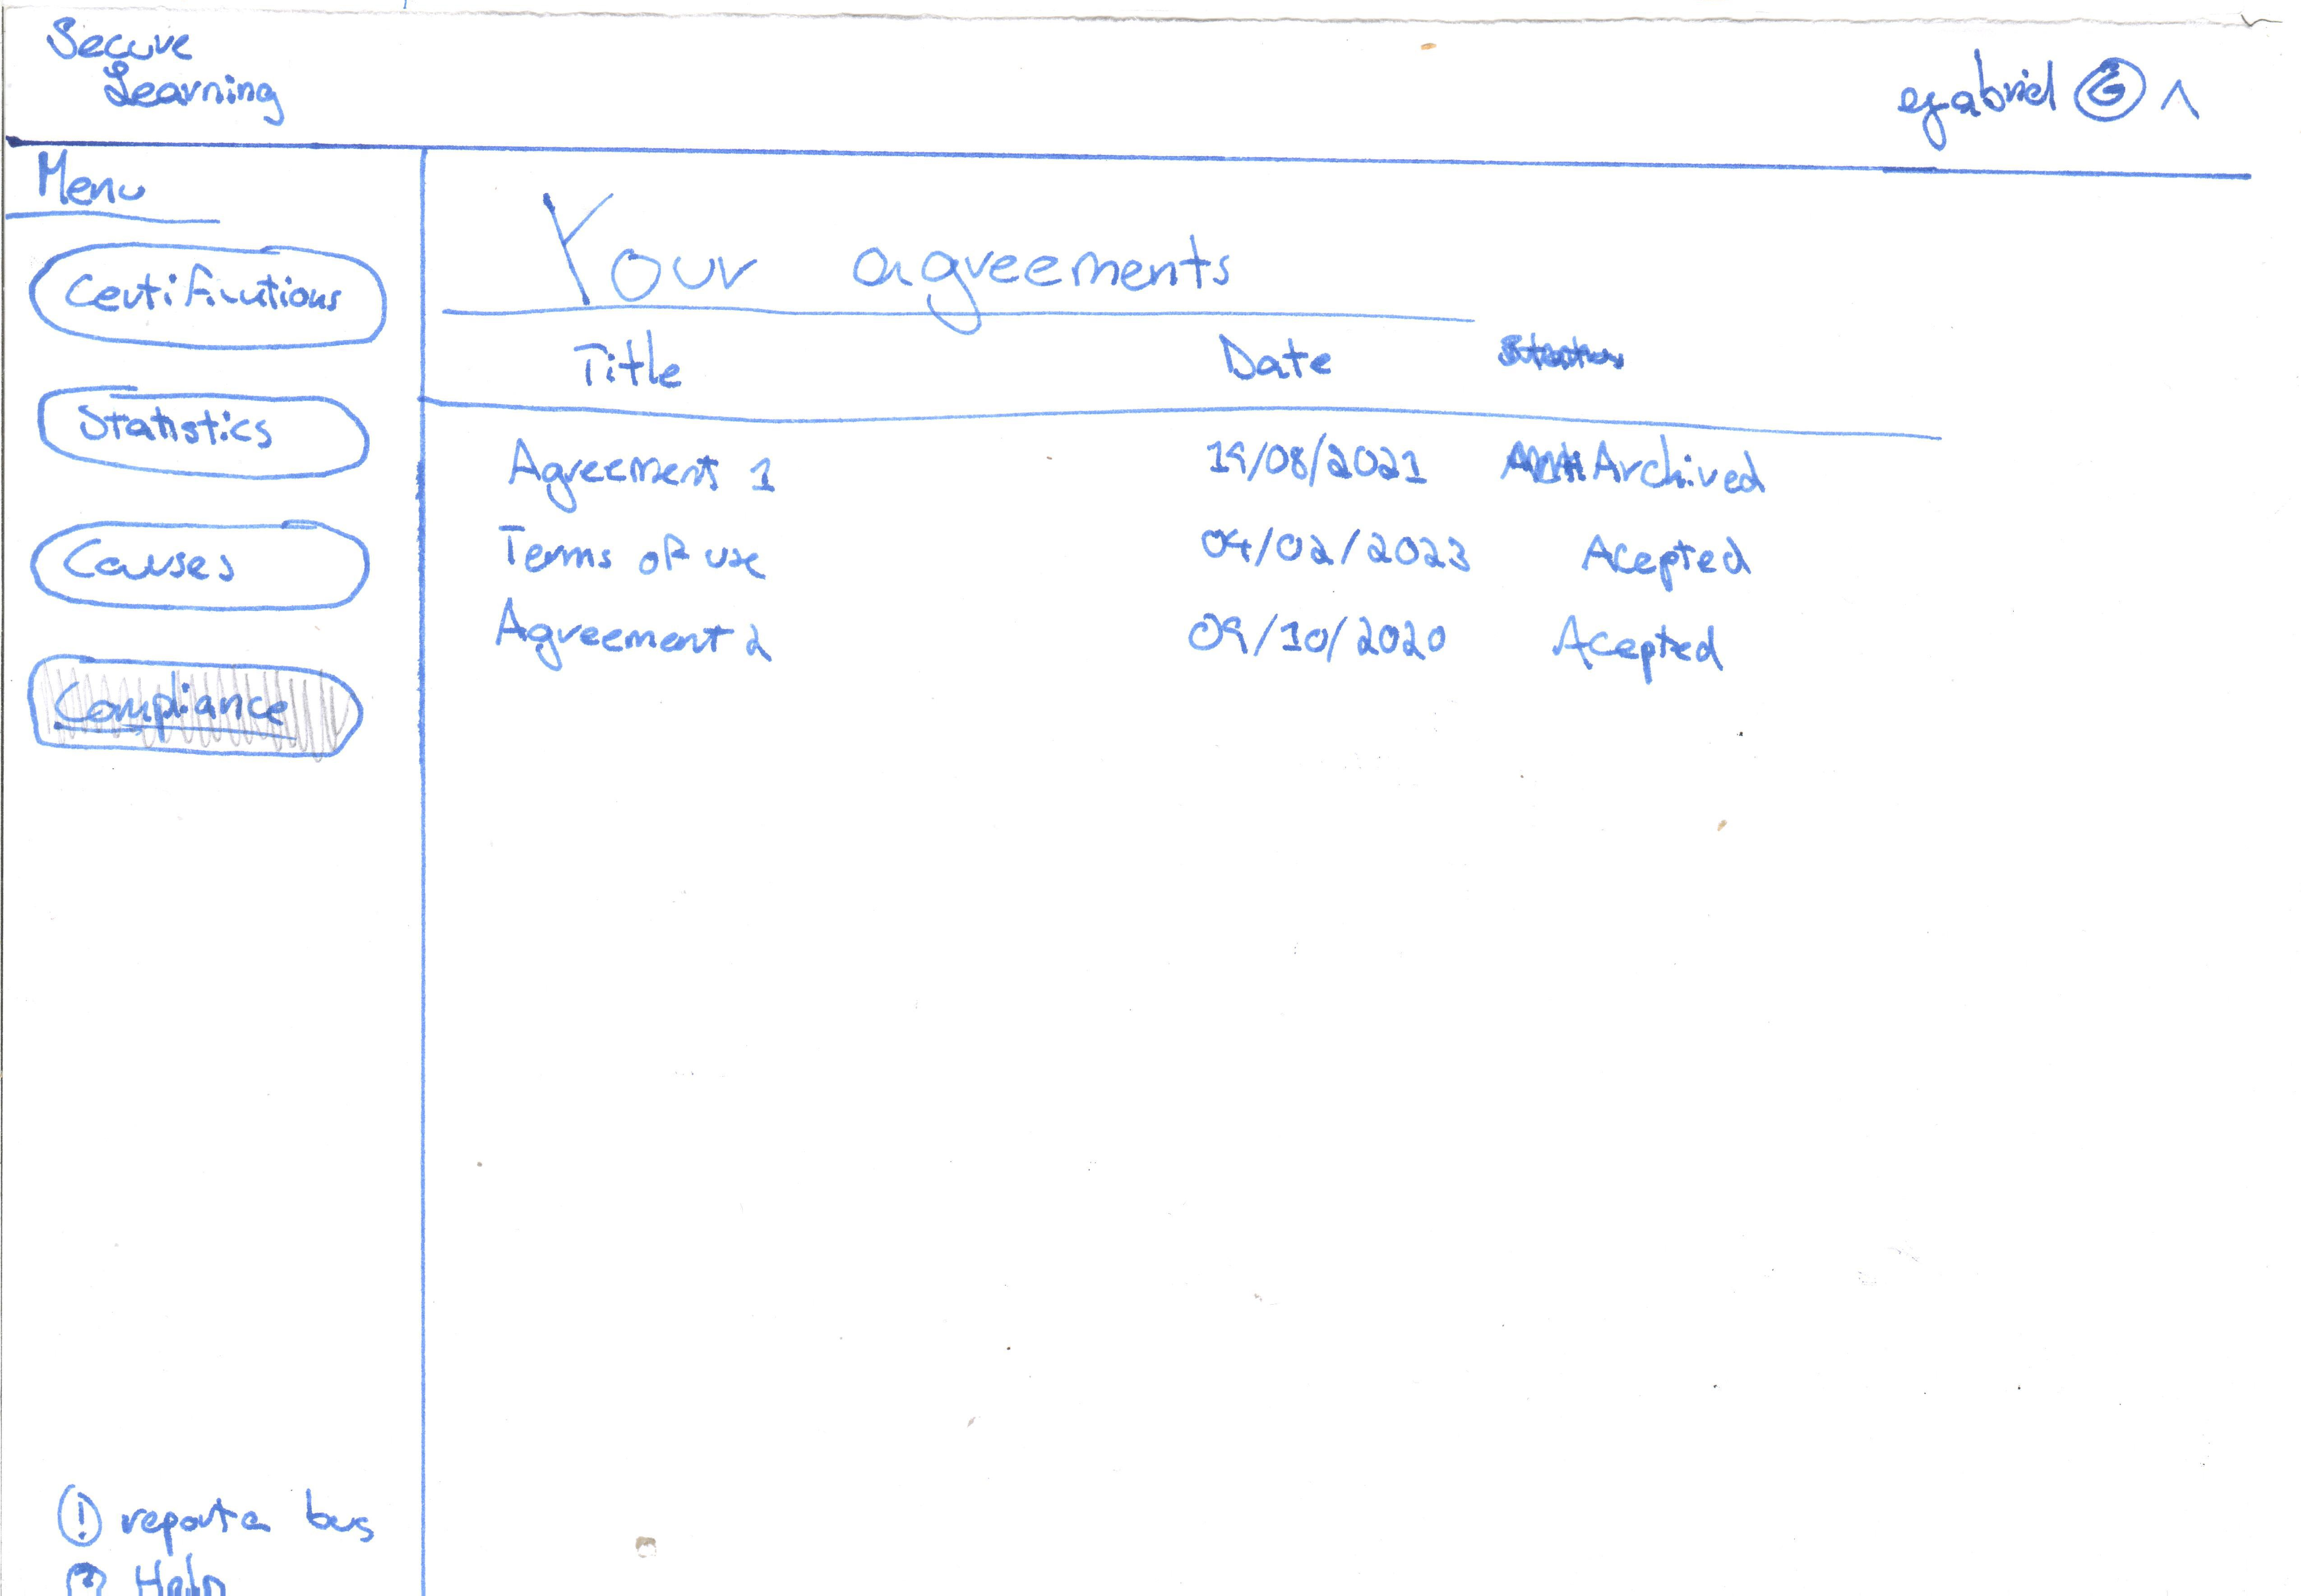 Secure
Learning
egabriel G ^
Menu
Certifications
Statistics
Causes
Compliance
Your agreements
Title Date Status
Agreement 1 19/08/2021 Archived
Terms of use 04/02/2023 Acepted
Agreement 2 09/10/2020 Acepted
! report a bug
? Help